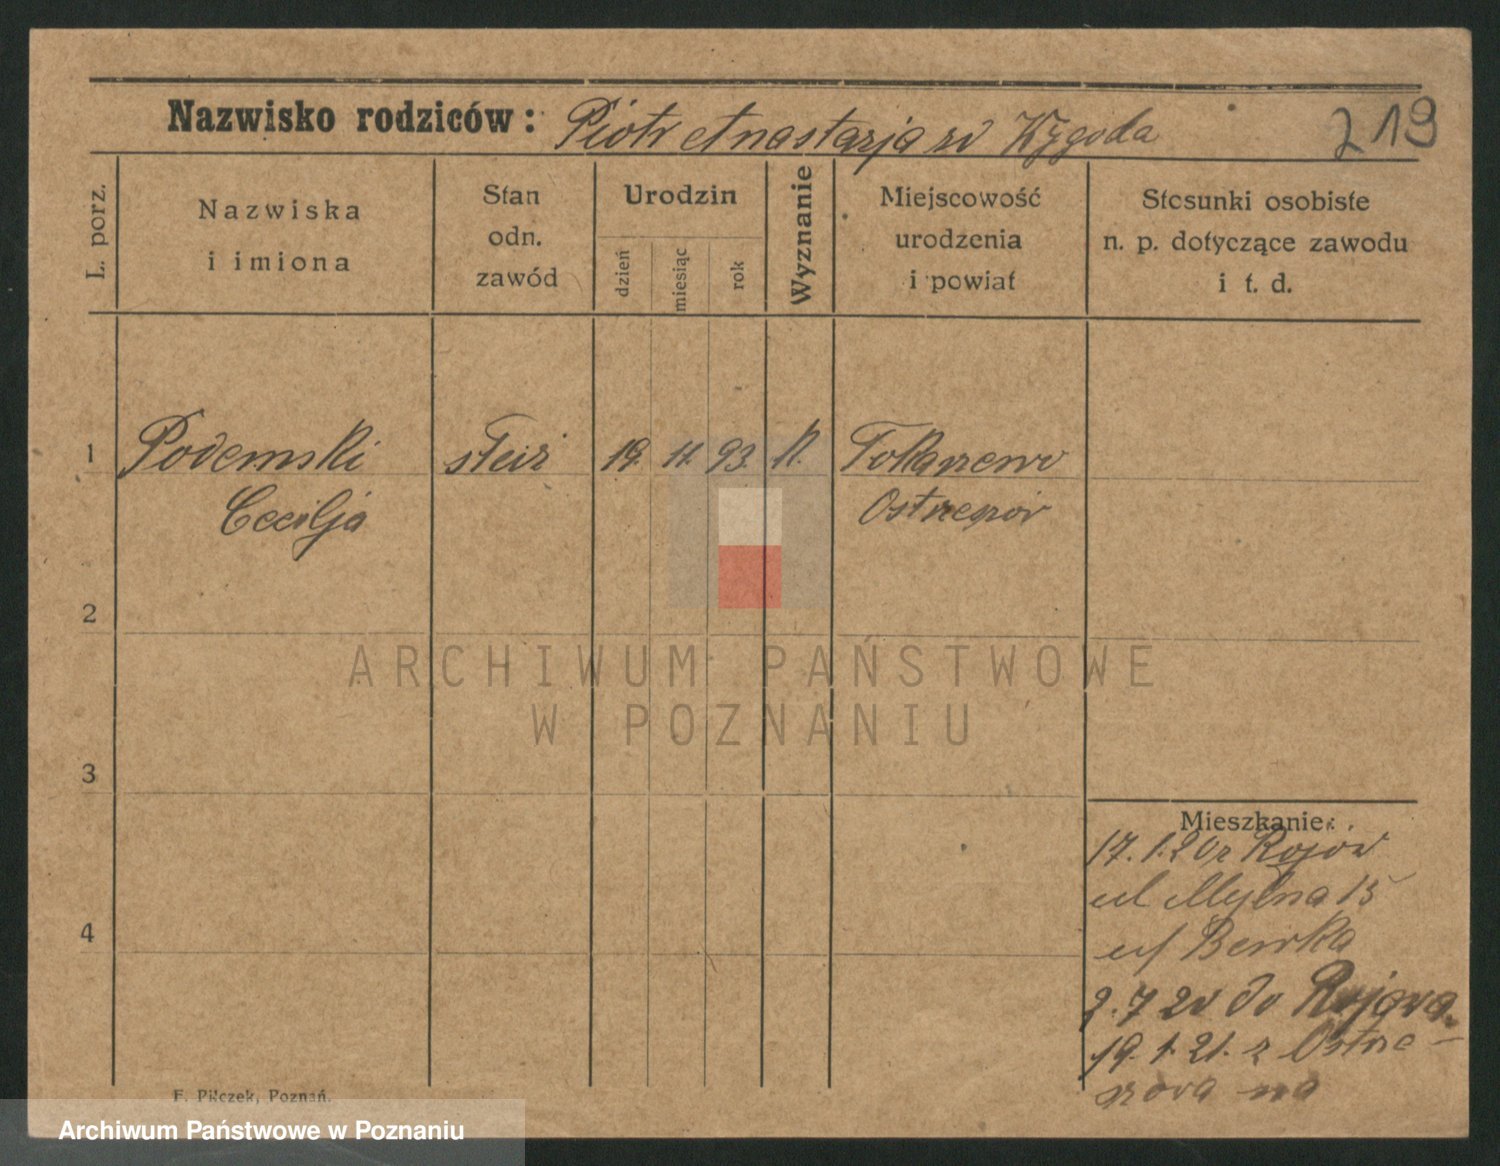 Nazwisko rodziców: Piotr Anastazja zd Wygoda
219
L. porz.
Nazwiska
i imiona
Stan
odn.
zawód
Urodzin
dzień
miesiąc
rok
Wyznanie
Miejscowość
urodzenia
i powiat
Stosunki osobiste
n. p. dotyczące zawodu
i t. d.
1 Podemski 19. 11. 93. k. Tokarzewo
Cecilja Ostrzeszów
2
3
4
Mieszkanie:
17. 1. 20 z Rojow
ul Mylna 15
2. 7 20 do Rojowa
19. 1. 21. z Ostrze-
szowa na
F. Pilczek, Poznań.
ARCHIWUM PAŃSTWOWE
W POZNANIU
Archiwum Państwowe w Poznaniu